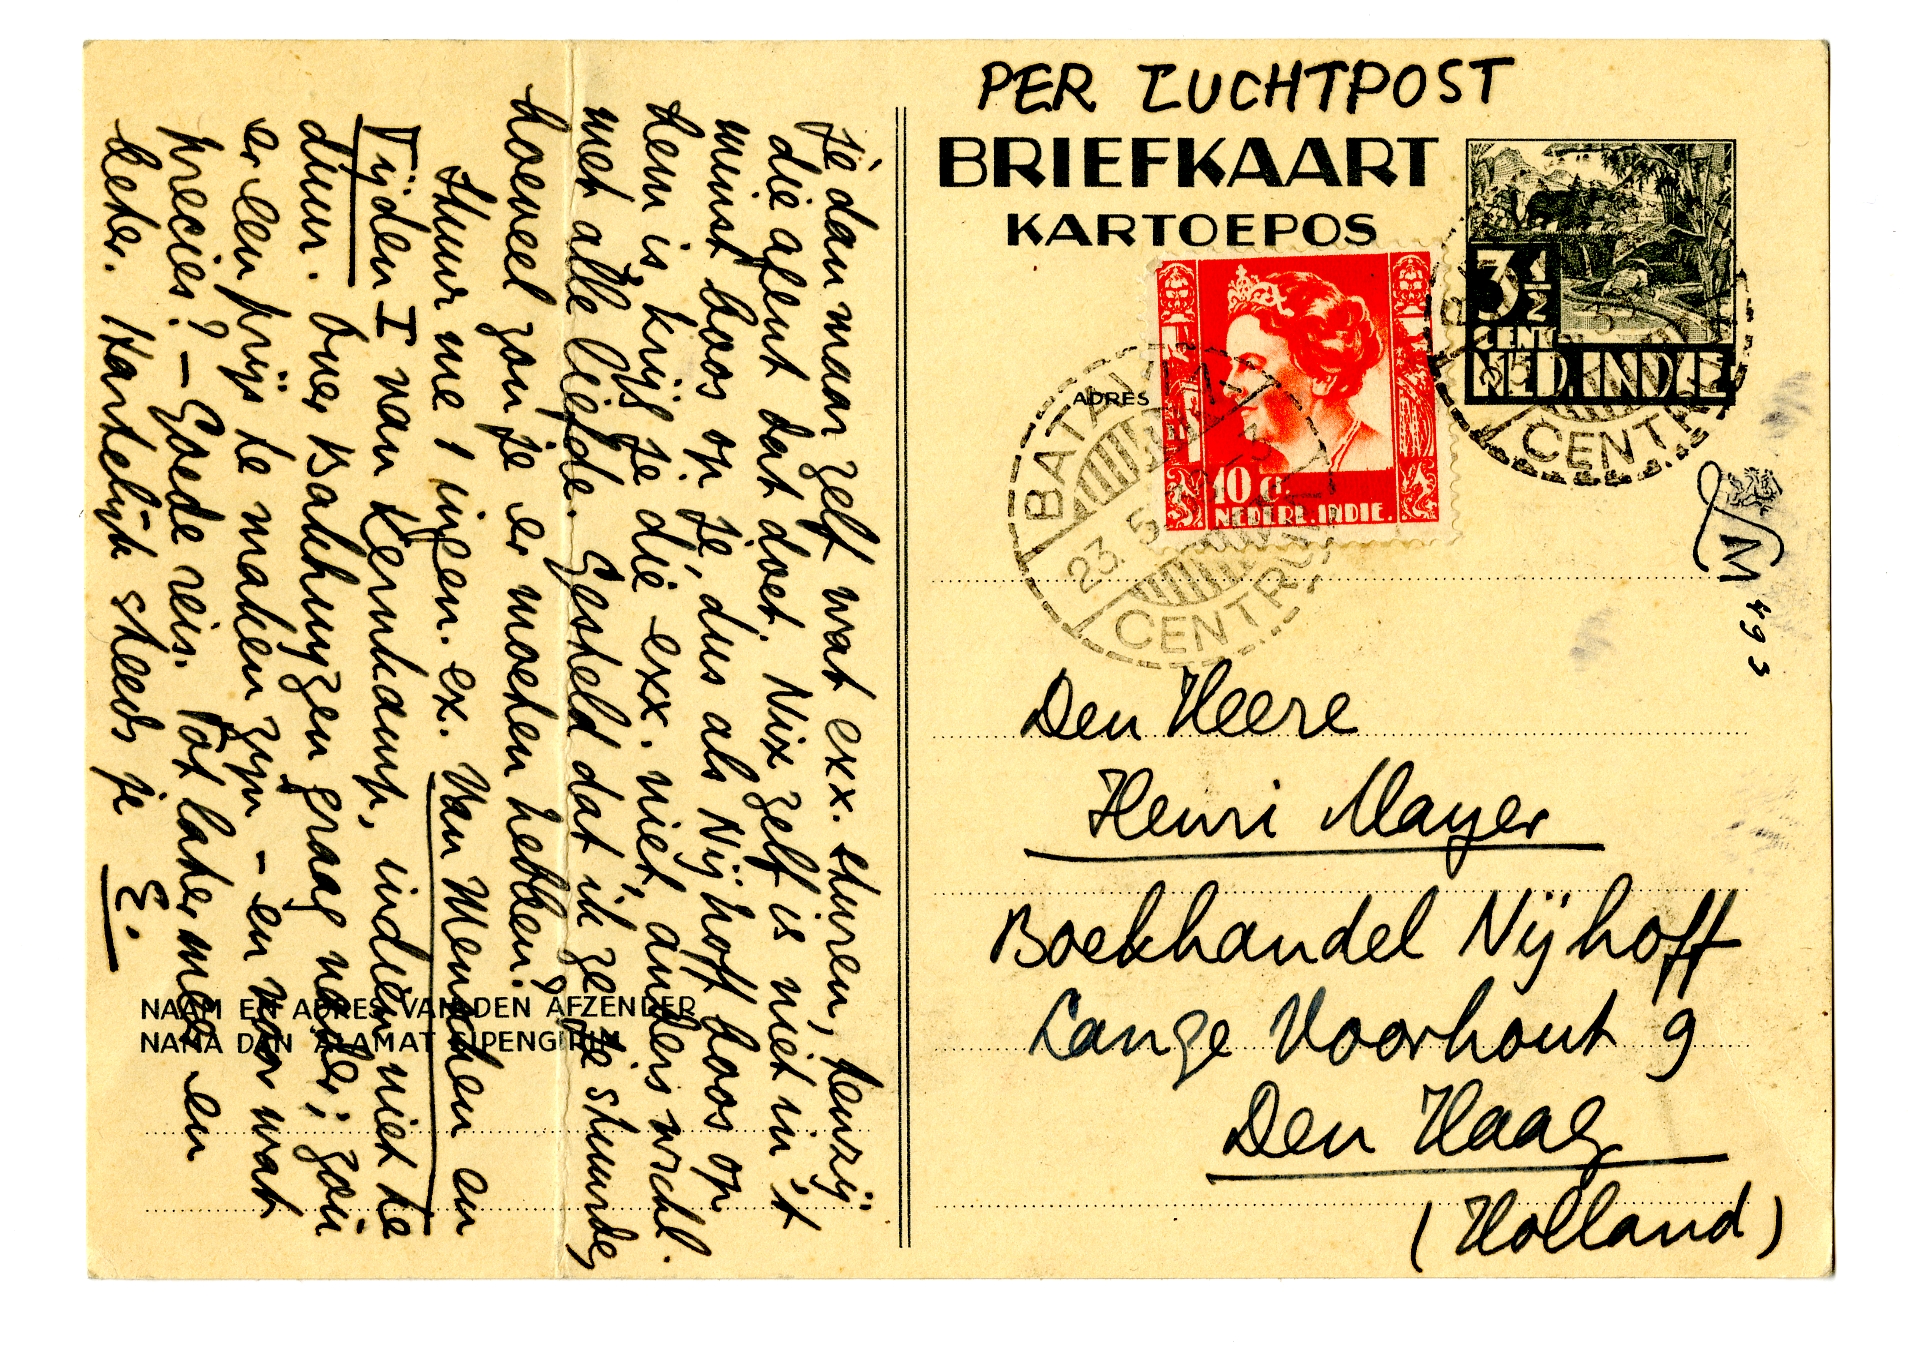 je dan maar zelf wat exx. sturen, tenzij
die agent dat doet. Nix zelf is niet in 't
minst boos op je, dus als Nijhoff boos op
hem is krijg je die exx. niet, anders wschl.
met alle liefde. Gesteld dat ik ze je stuurde,
hoeveel zou je er moeten hebben?
Stuur me 1 ingen. ex. Van Menschen en
Tijden I van Kernkamp, indien niet te
duur. Over Bakhuyzen graag nader; zou
er een prijs te maken zijn – en voor wat
precies? – Goede reis. Tot later meer en
beter. Hartelijk steeds je
E.
NAAM EN ADRES VAN DEN AFZENDER
NAMA DAN ALAMAT SIPENGIRIM
PER LUCHTPOST
BRIEFKAART
KARTOEPOS
3½
CENT
NED. INDIE
ADRES
10 ct.
NEDERL. INDIE.
BATAVIA
23. 5.
CENTRUM
CENTR
M 493
Den Heere
Henri Mayer
Boekhandel Nijhoff
Lange Voorhout 9
Den Haag
(Holland)